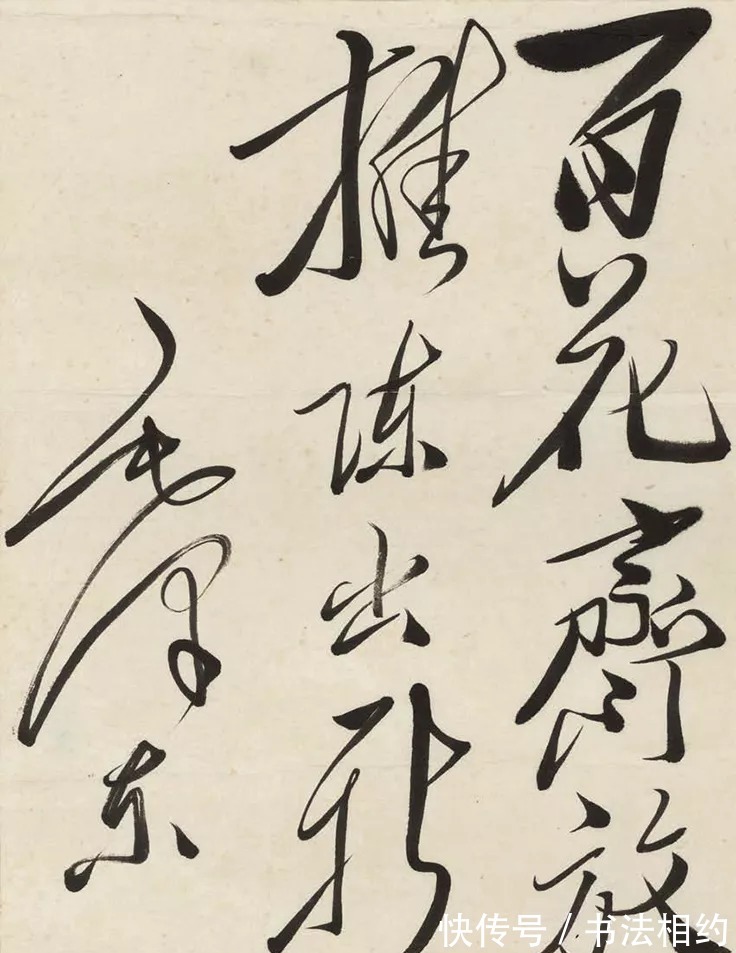 百花齊放
推陈出新
毛泽东
快传号 / 书法相约